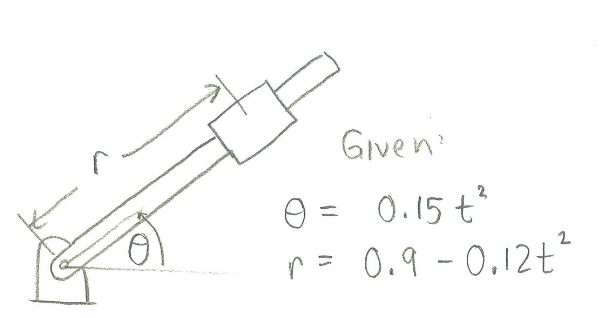 r
Given:
θ
θ = 0.15t²
r = 0.9 - 0.12t²